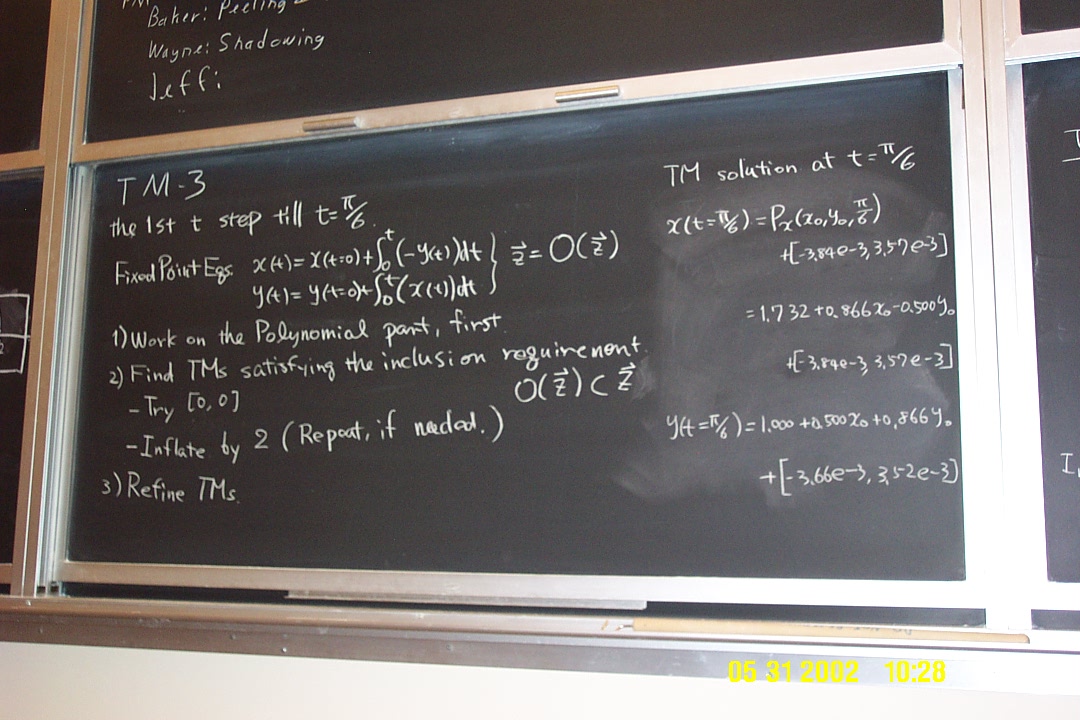 Baker: Peeling
Wayne: Shadowing
Jeff:
TM-3
the 1st t step till t=π/6.
Fixed Point Eqs. x(t)=x(t=0)+∫₀ᵗ(-y(t))dt } z⃗ = O(z⃗)
y(t)=y(t=0)+∫₀ᵗ(x(t))dt
1) Work on the Polynomial part, first.
2) Find TMs satisfying the inclusion requirement.
O(z⃗) ⊂ z⃗
-Try [0,0]
-Inflate by 2 (Repeat, if needed.)
3) Refine TMs.
TM solution at t=π/6
x(t=π/6)=Pₓ(x₀,y₀,π/6)
+[-3.84e-3,3.57e-3]
=1.732+0.866x₀-0.500y₀
+[-3.84e-3,3.57e-3]
y(t=π/6)=1.000+0.500x₀+0.866y₀
+[-3.66e-3,3.52e-3]
05 31 2002 10:28